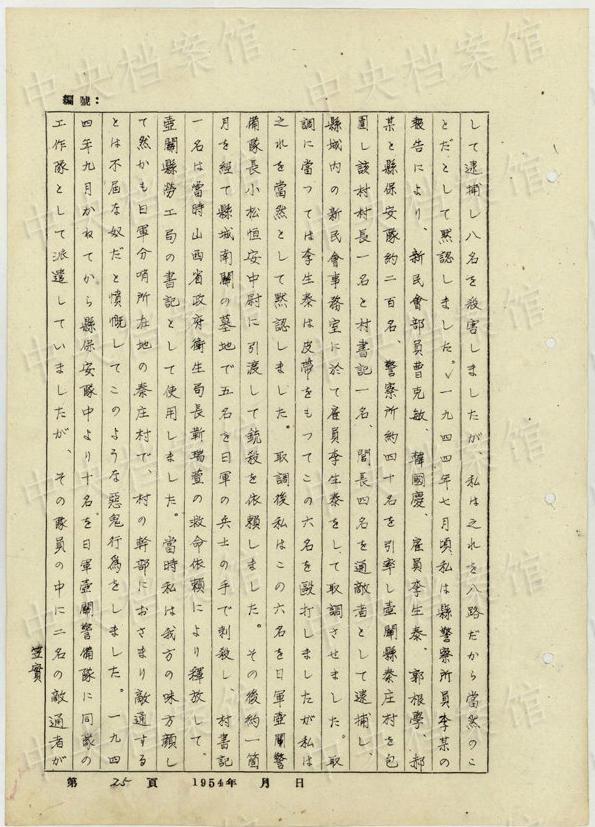 編號：
して逮捕し八名を殺害しましたが、私は之れを八路だから當然のこ
とだとして黙認しました。✓一九四四年七月頃私は縣警察所員李某の
報告により、新民會部員曹克敏、韓國慶、雇員李生泰、郭根學、郝
某と縣保安隊約二百名、警察所約四十名を引率し壺關縣秦庄村を包
圍し該村村長一名と村書記一名、閭長四名を通敵者として逮捕し、
縣城内の新民會事務室に於て雇員李生泰をして取調させました。取
調に當つては李生泰は皮帶をもつてこの六名を毆打しましたが私は
之れを當然として黙認しました。取調後私はこの六名を日軍壺關警
備隊長小松恒安中尉に引渡して銃殺を依賴しました。その後約一箇
月を経て縣城南關の墓地で五名を日軍の兵士の手で刺殺し、村書記
一名は當時山西省政府衛生局長靳瑞萱の救命依賴により釋放して、
壺關縣勞工局の書記として使用しました。當時私は我方の味方顏し
て然かも日軍分哨所在地の秦庄村で、村の幹部におさまり敵通する
とは不屆な奴だと憤慨してこのような惡鬼行為をしました。一九四
四年九月かねてから縣保安隊中より十名を日軍壺關警備隊に同隊の
工作隊として派遣していましたが、その隊員の中に二名の敵通者が
笠實
第 25 頁 1954年 月 日
中央档案馆